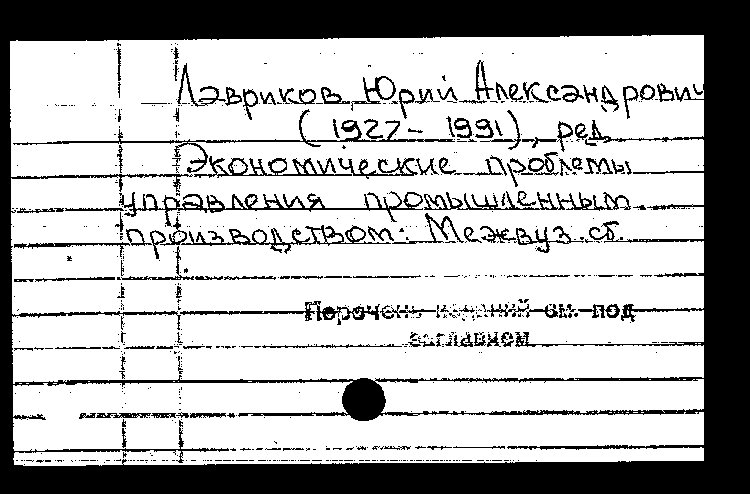 Лавриков Юрий Александрович
(1927 - 1991), ред.
Экономические проблемы
управления промышленным
производством: Межвуз. сб.
Перечень изданий см. под
заглавием